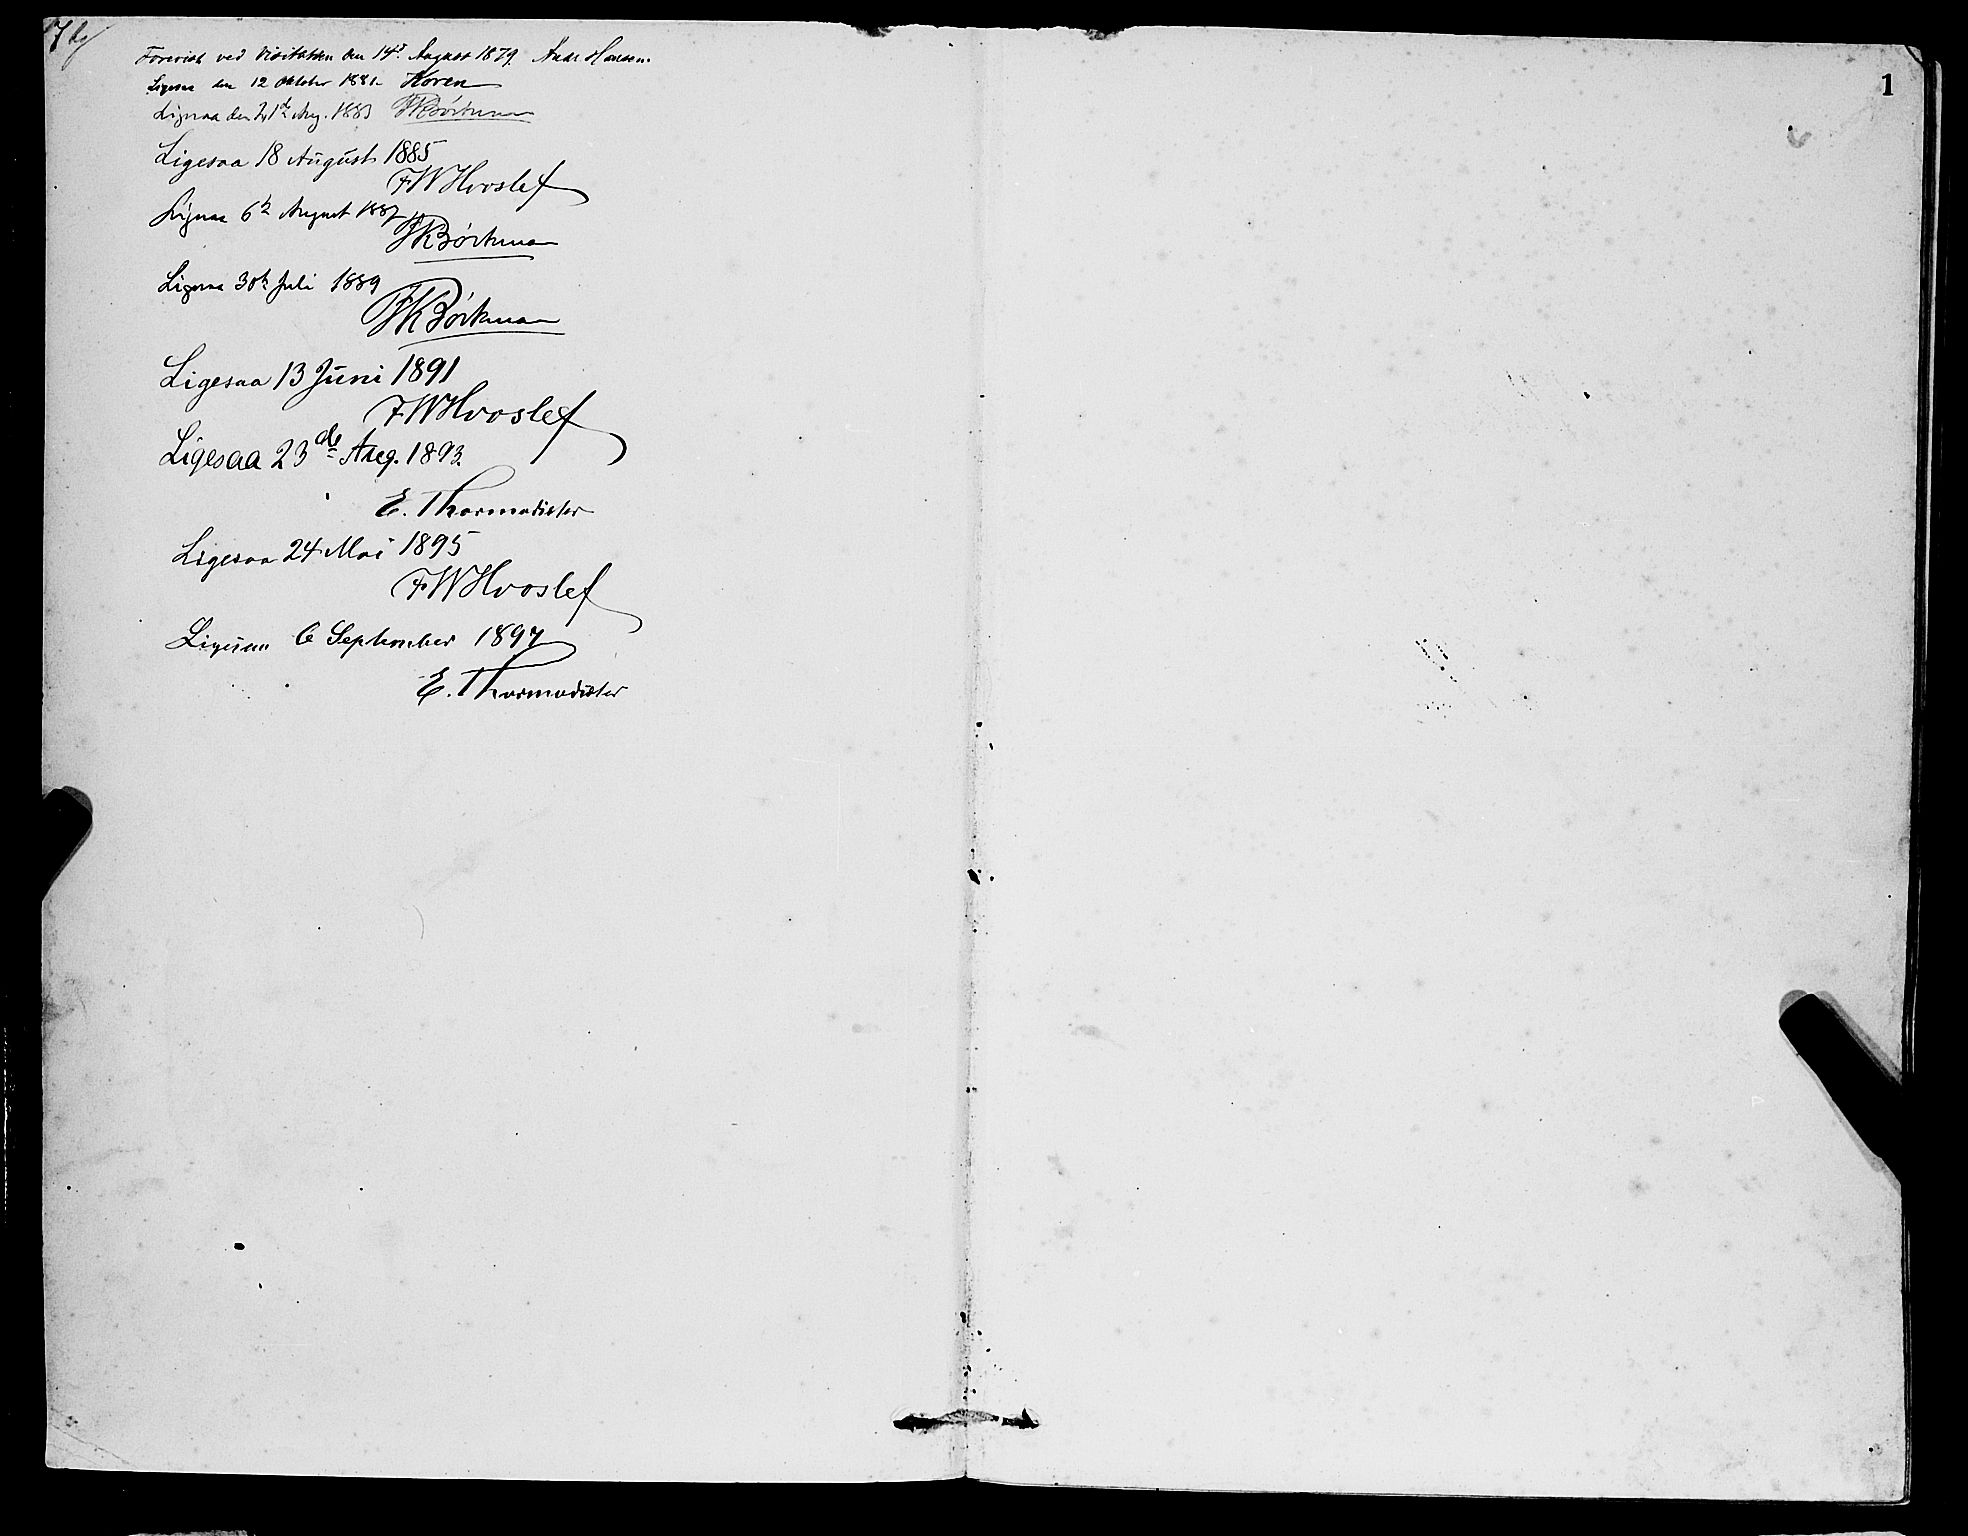 Forevist ved Visitatsen den 14de August 1879. Andr Hansen.
Ligesaa den 12 Oktober 1881. Horen
Ligesaa den 21de Aug. 1883 JKBörkman
Ligesaa 18 August 1885
FWHvoslef
Ligesaa 6te August 1887
JKBörkman
Ligesaa 30te Juli 1889
JKBörkman
Ligesaa 13 Juni 1891
FWHvoslef
Ligesaa 23de Aug. 1893.
E. Thormodsæter
Ligesaa 24 Mai 1895
FWHvoslef
Ligesaa 6 September 1897
E. Thormodsæter
1